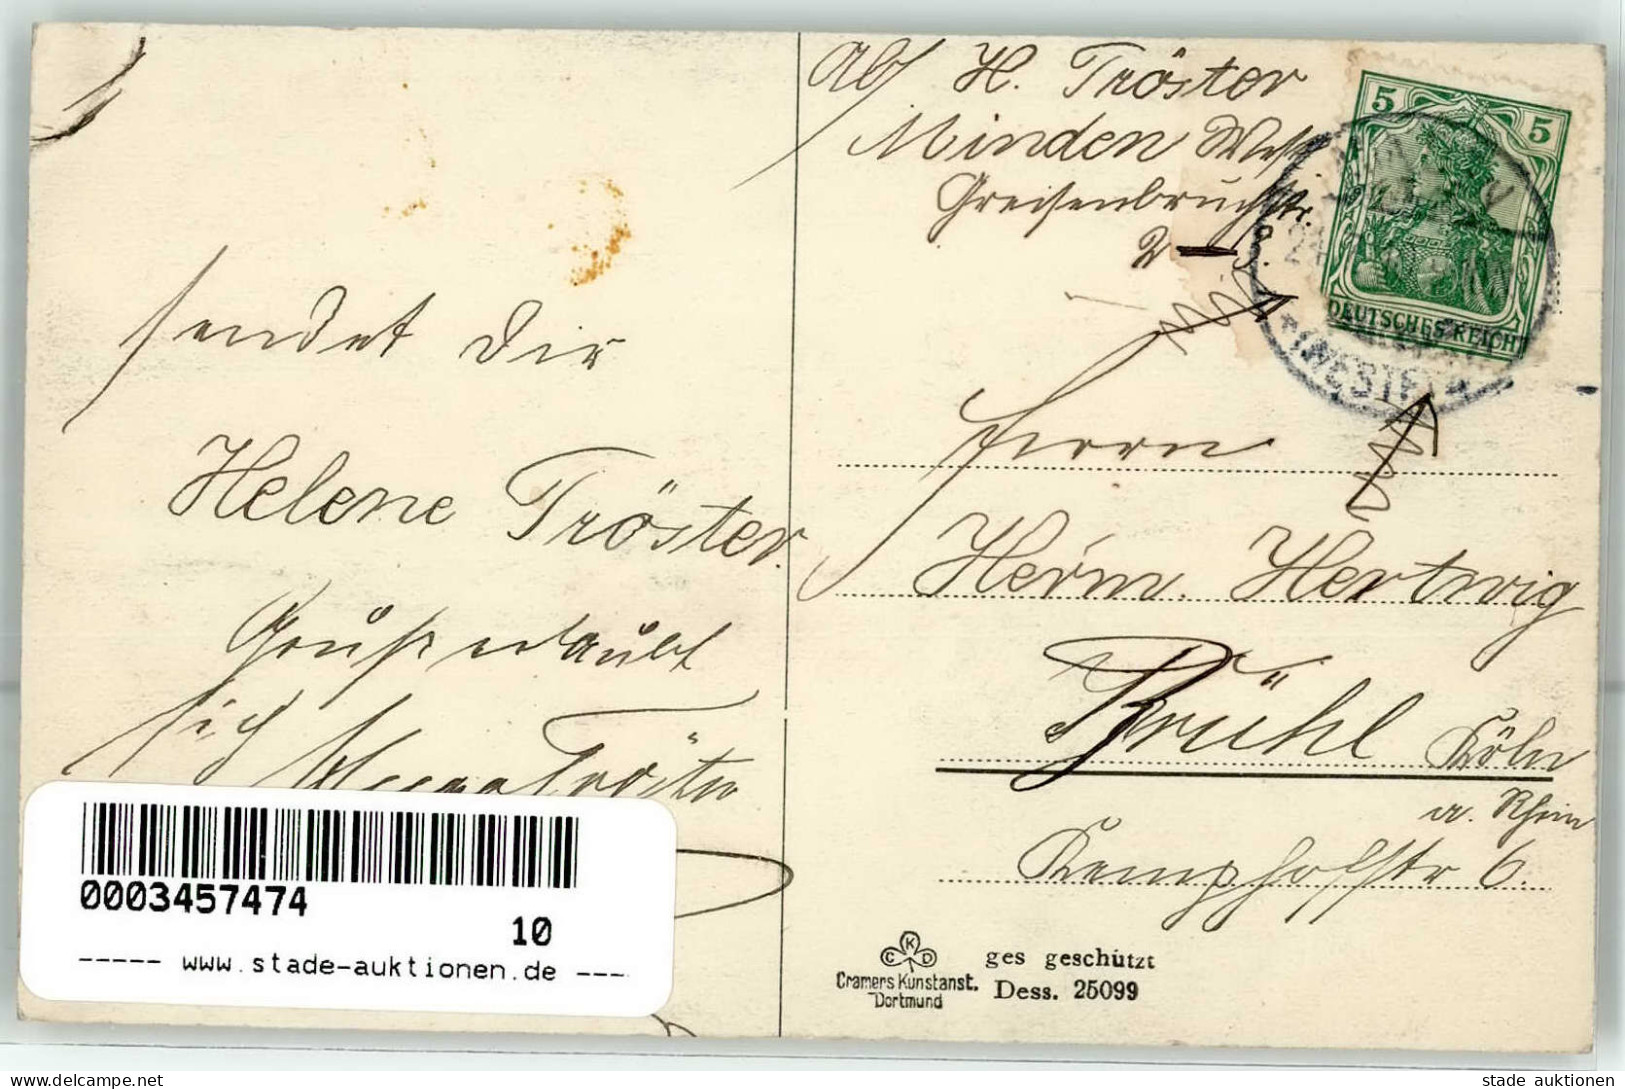 sendet Dir
Helene Tröster.
Gruß erlaubt
sich
Tröster
Abs H. Tröster
Minden Westf
Greisenbruchstr.
2
5 5
DEUTSCHES REICH
MINDEN
(WESTF)
Herrn
Herm. Hertwig
Brühl Köln
a. Rhein
Kemphofstr 6.
CKD
Cramers Kunstanst.
Dortmund
ges geschützt
Dess. 25099
0003457474
10
----- www.stade-auktionen.de ----
delcampe.net
stade auktionen